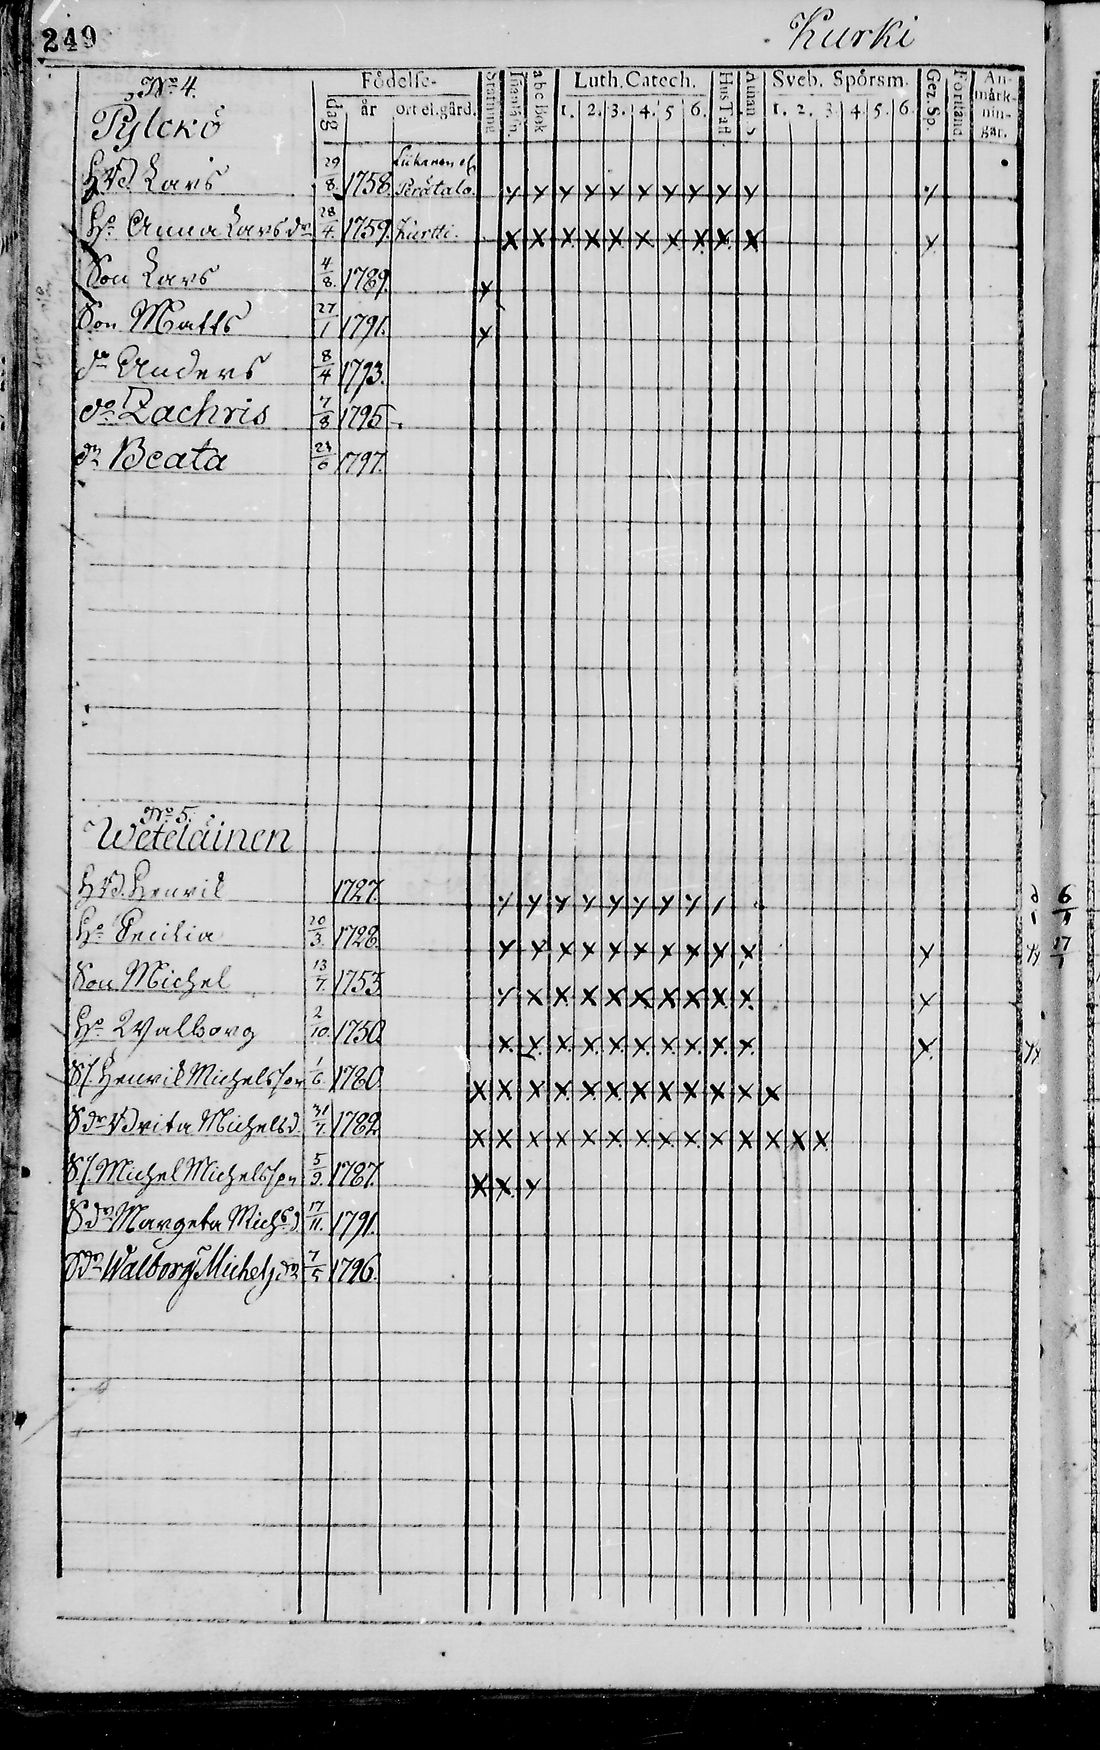 249
Kurki
Födelse-
dag
år
ort el. gård.
abc Bok
Luth. Catech.
1. 2. 3. 4. 5 6.
Hus Taff
Sveb. Spörsm.
1. 2. 3 4. 5. 6.
Gez. Sp.
Förstånd
An-
märk-
nin-
gar.
No 4.
Pylckö
Lars 29/8. 1758. Perätalo.
Ho Anna Larsdr 28/4. 1759. Kurtti.
Son Lars 4/8. 1789.
Son Matts 27/1 1791.
Anders 8/4 1793.
do Zachris 7/8 1795.
dr Beata 1797.
No 5.
Weteläinen
Henrik 1727.
Ho Cecilia 20/3. 1728.
Son Michel 13/7. 1753.
Ho Walborg 2/10. 1750.
Henrik Michelsson 1/6. 1780.
Sdr Brita Michelsd. 31/7. 1782.
Michel Michelsson 5/9. 1787.
Sdr Margeta Michsd 17/11. 1791.
Sdr Walborg Michelsdr 7/5 1796.
6
17/1